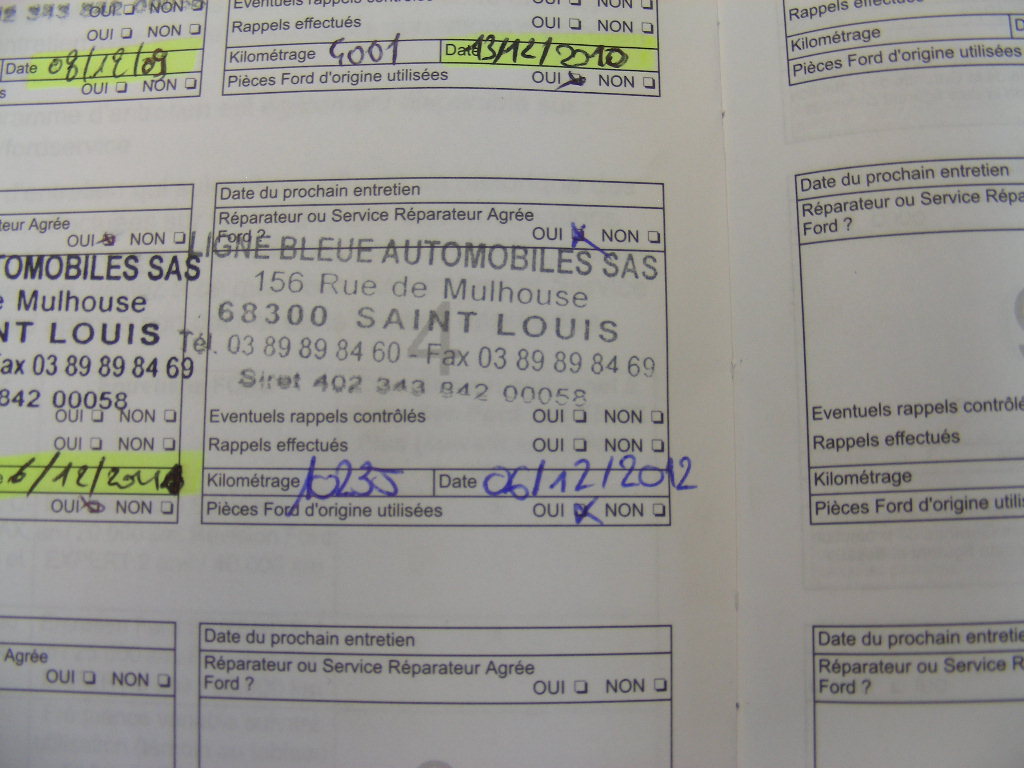 OUI ❑ NON ❑
OUI ❑ NON ❑
Date 08/12/09
OUI ❑ NON ❑
Eventuels rappels contrôlés OUI ❑ NON ❑
Rappels effectués OUI ❑ NON ❑
Kilométrage 4001 Date 13/12/2010
Pièces Ford d'origine utilisées OUI ❑ NON ❑
Rappels effectués
Kilométrage
Pièces Ford d'origine utilisées
teur Agrée
OUI ❑ NON ❑
TOMOBILES SAS
e Mulhouse
NT LOUIS
Fax 03 89 89 84 69
842 00058
OUI ❑ NON ❑
OUI ❑ NON ❑
OUI ❑ NON ❑
Date du prochain entretien
Réparateur ou Service Réparateur Agrée
Ford ? OUI ❑ NON ❑
LIGNE BLEUE AUTOMOBILES SAS
156 Rue de Mulhouse
68300 SAINT LOUIS
4
Tél. 03 89 89 84 60 - Fax 03 89 89 84 69
Siret 402 343 842 00058
Eventuels rappels contrôlés OUI ❑ NON ❑
Rappels effectués OUI ❑ NON ❑
Kilométrage 10235 Date 06/12/2012
Pièces Ford d'origine utilisées OUI ❑ NON ❑
Date du prochain entretien
Réparateur ou Service Répa
Ford ?
Eventuels rappels contrôlé
Rappels effectués
Kilométrage
Pièces Ford d'origine utilis
Agrée
OUI ❑ NON ❑
Date du prochain entretien
Réparateur ou Service Réparateur Agrée
Ford ? OUI ❑ NON ❑
Date du prochain entretie
Réparateur ou Service R
Ford ?